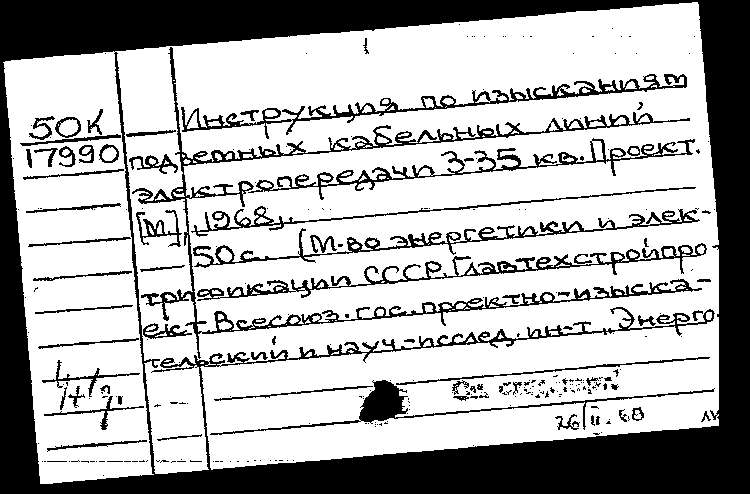 50К
17990
Инструкция по изысканиям
подземных кабельных линий
электропередачи 3-35 кв. Проект.
[М.], 1968г.
50 с. (М-во энергетики и элек-
трификации СССР. Главтехстройпро-
ект. Всесоюз. гос. проектно-изыска-
тельский и науч.-исслед. ин-т „Энерго-
См.
26/II.68